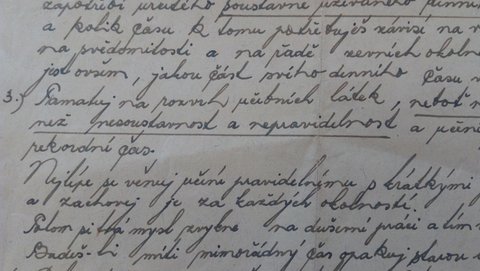 zapotřebí určitého soustavně užívaného
a kolik času k tomu potřebuješ závisí na
na svědomitosti a na řadě zevních okolno
jistě ovšem, jakou část svého denního času v
3.) Pamatuj na rozvrh učebních látek, neboť n
než nesoustavnost a nepravidelnost a učení
rekordní čas.
Nejlépe se věnuj učení pravidelnému s krátkými
a zachovej je za každých okolností.
Potom si tvá mysl zvykne na duševní práci a tím
Budeš-li míti mimořádný čas opakuj starou